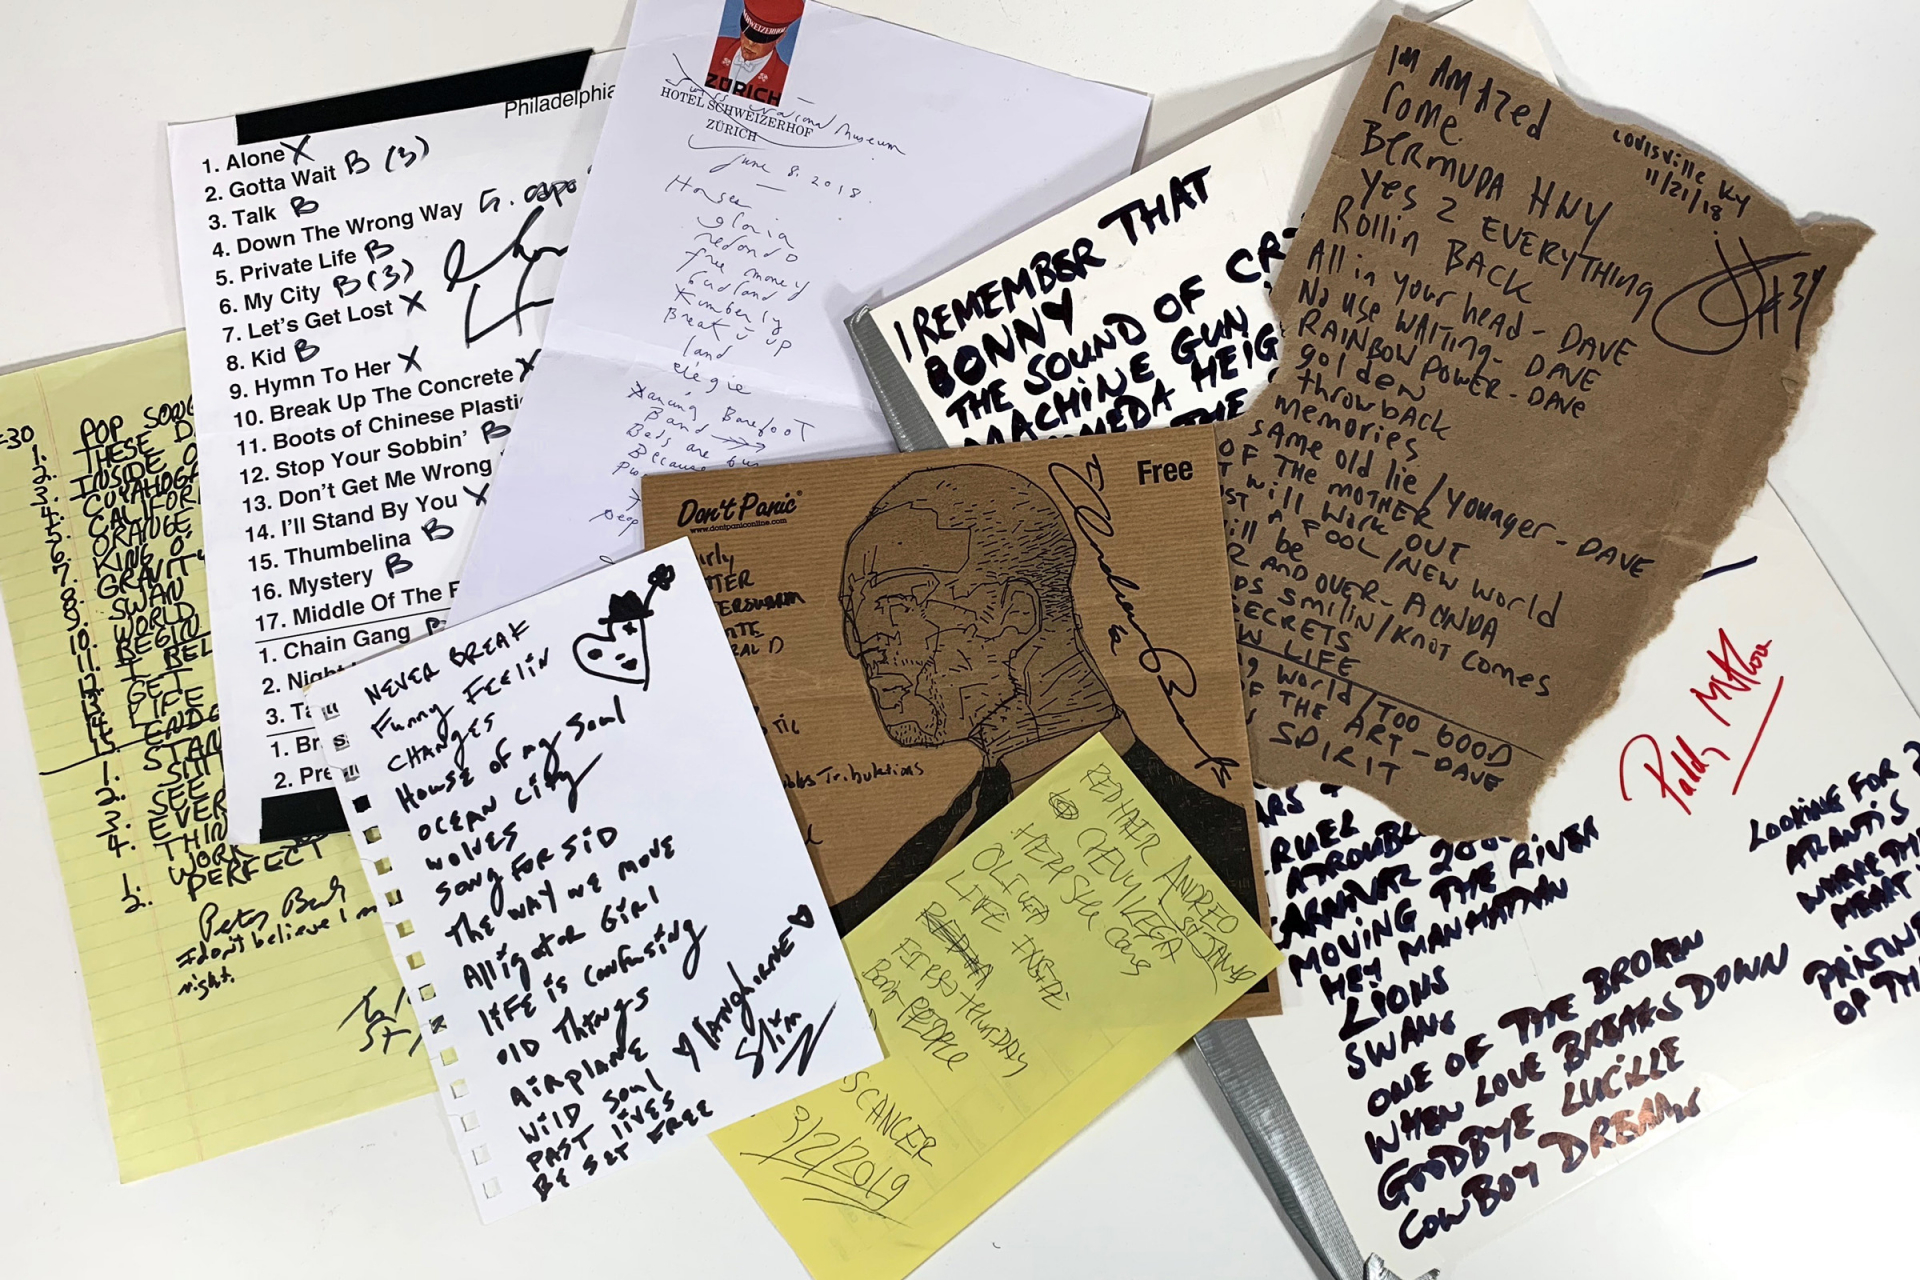 POP SONG
THESE D
INSIDE O
CUYAHOGA
CALIFOR
ORANGE
KING O'
GRAVITY
SWAN
WORLD
BEGIN
I BEL
GET
LIFE
ENDG
1. STAN
2. SITT
3. SEE
4. EVER
THIN
1. WORK
2. PERFECT
I don't believe I m
night.
Philadelphia
1. Alone X
2. Gotta Wait B (3)
3. Talk B
4. Down The Wrong Way G. capo
5. Private Life B
6. My City B (3)
7. Let's Get Lost X
8. Kid B
9. Hymn To Her X
10. Break Up The Concrete X
11. Boots of Chinese Plasti
12. Stop Your Sobbin' B
13. Don't Get Me Wrong
14. I'll Stand By You X
15. Thumbelina B
16. Mystery B
17. Middle Of The R
1. Chain Gang B
2. Nigh
3. Ta
1. Br
2. Pre
SCHWEIZERHOF
ZÜRICH
Swiss National Museum
HOTEL SCHWEIZERHOF
ZÜRICH
June 8, 2018.
Horses
gloria
redondo
free money
birdland
kimberly
Break it up
land
elegie
Dancing Barefoot
Band
Beds are bu
Because
NEVER BREAK
Funny Feelin
CHANGES
House of my Soul
OCEAN City
Wolves
Song FOR Sid
THE WAY WE MOVE
Alligator Girl
liFE is confusing
old Things
AiRPLANE
Wild Soul
PAST LIVES
BE SET FREE
Langhorne
Slim
Don't Panic
www.dontpaniconline.com
Free
Tributations
RED HAIR
ANDREO
CHEVY VEGA
ST JAMES
OLIVIA
LIFE INSIDE
FIRST THURSDAY
BOAT PEOPLE
SCANCER
3/2/2019
I REMEMBER THAT
BONNY
THE SOUND OF CR
MACHINE GUN
MEDA HEIG
THE
CRUEL
A TROUBLE
CARNIVAL 2000
MOVING THE RIVER
HEY MANHATTAN
LIONS
SWANS
ONE OF THE BROKEN
WHEN LOVE BREAKS DOWN
GOODBYE LUCILLE
COWBOY DREAMS
Paddy McAloon
LOOKING FOR A
ATLANTIS
WHERE THE
HEART
PRISONE
OF TH
I'M AMAZED
Rome
BERMUDA HWY
Yes 2 EVERYTHING
Rollin BACK
All in your head - DAVE
No use WAITING - DAVE
RAINBOW POWER - DAVE
golden
throwback
memories
same old lie / younger - DAVE
OF THE MOTHER
T will work OUT
ST A FOOL / NEW World
ill be
R AND OVER - AMNDA
DS Smilin / KNOT COMES
SECRETS
EW LIFE
ng World / TOO GOOD
OF THE ART - DAVE
SPIRIT
Louisville Ky
11/21/18